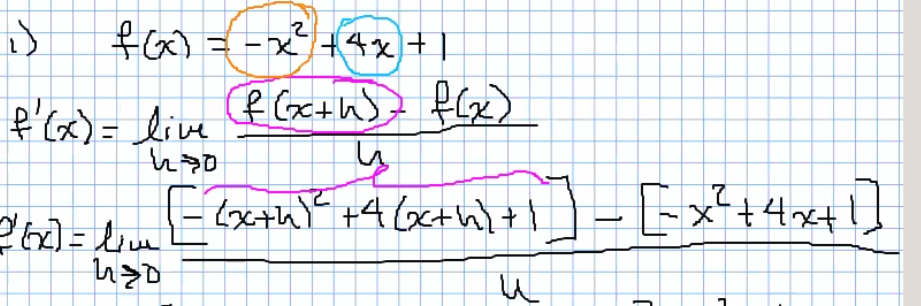 1) f(x) = -x² + 4x + 1
f'(x) = lim h→0 f(x+h) - f(x) / h
f'(x) = lim h→0 [-(x+h)² + 4(x+h) + 1] - [-x² + 4x + 1] / h